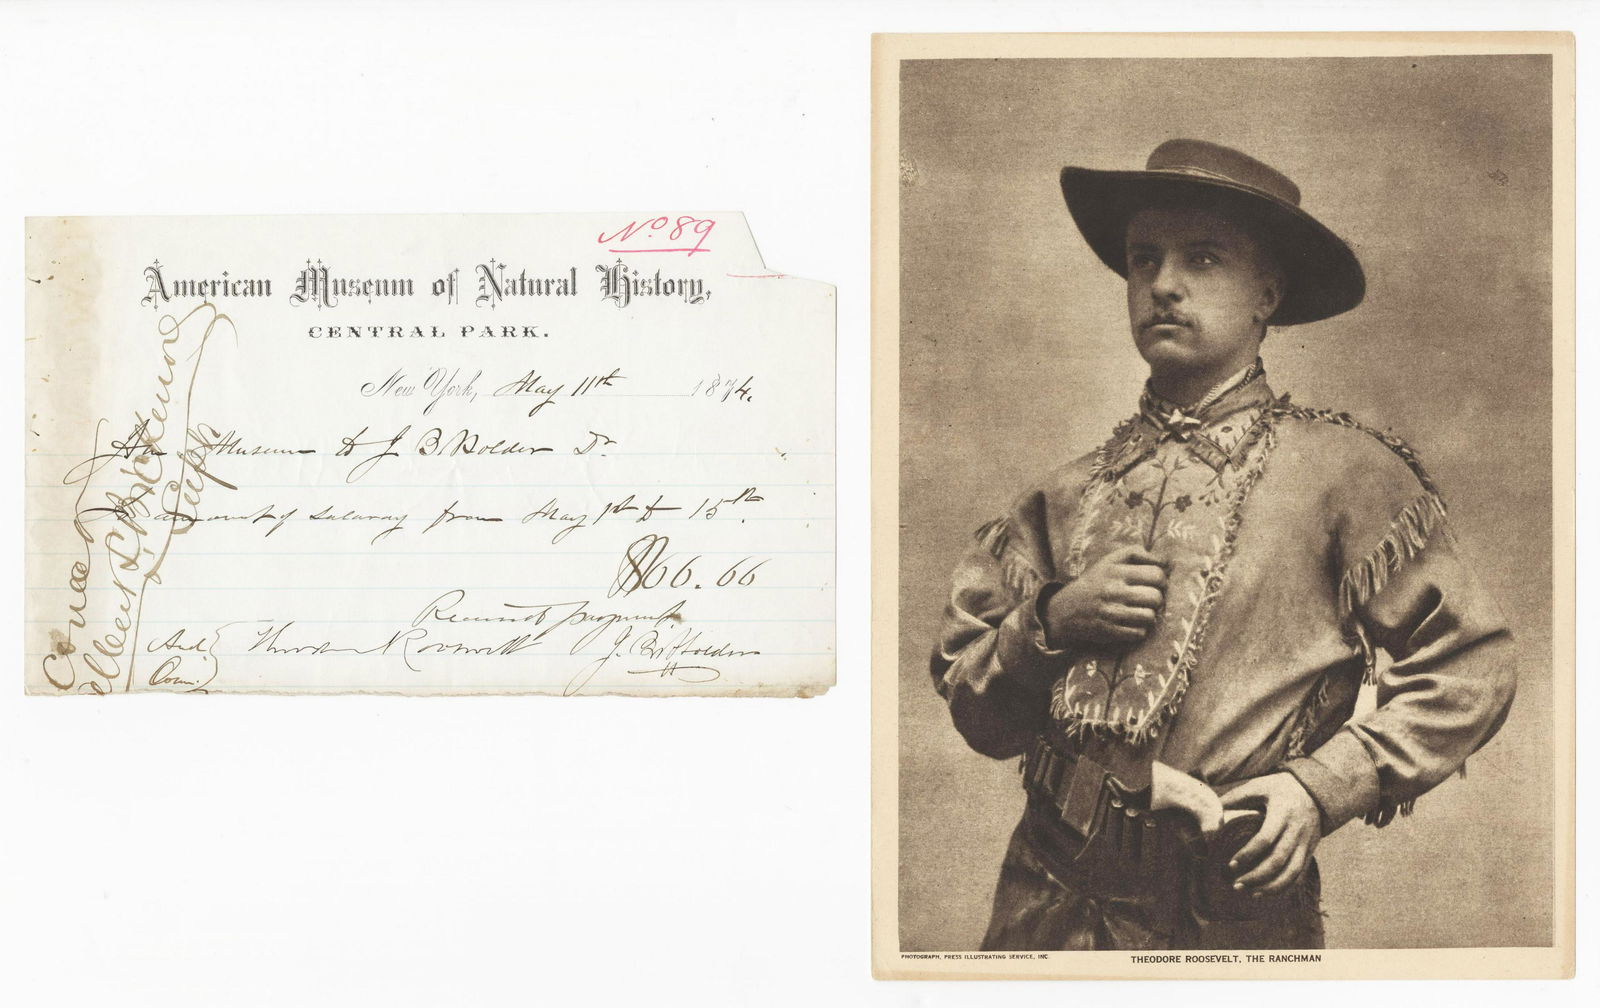 No. 89
American Museum of Natural History,
CENTRAL PARK.
New York, May 11th 1874.
The Museum to J B Holder Dr.
To amount of salary from May 1st to 15th.
$66.66
Received payment
J. B. Holder
Aud. Com. Theodore Roosevelt
Correct
Albert S. Bickmore
Supt
PHOTOGRAPH, PRESS ILLUSTRATING SERVICE, INC.
THEODORE ROOSEVELT, THE RANCHMAN